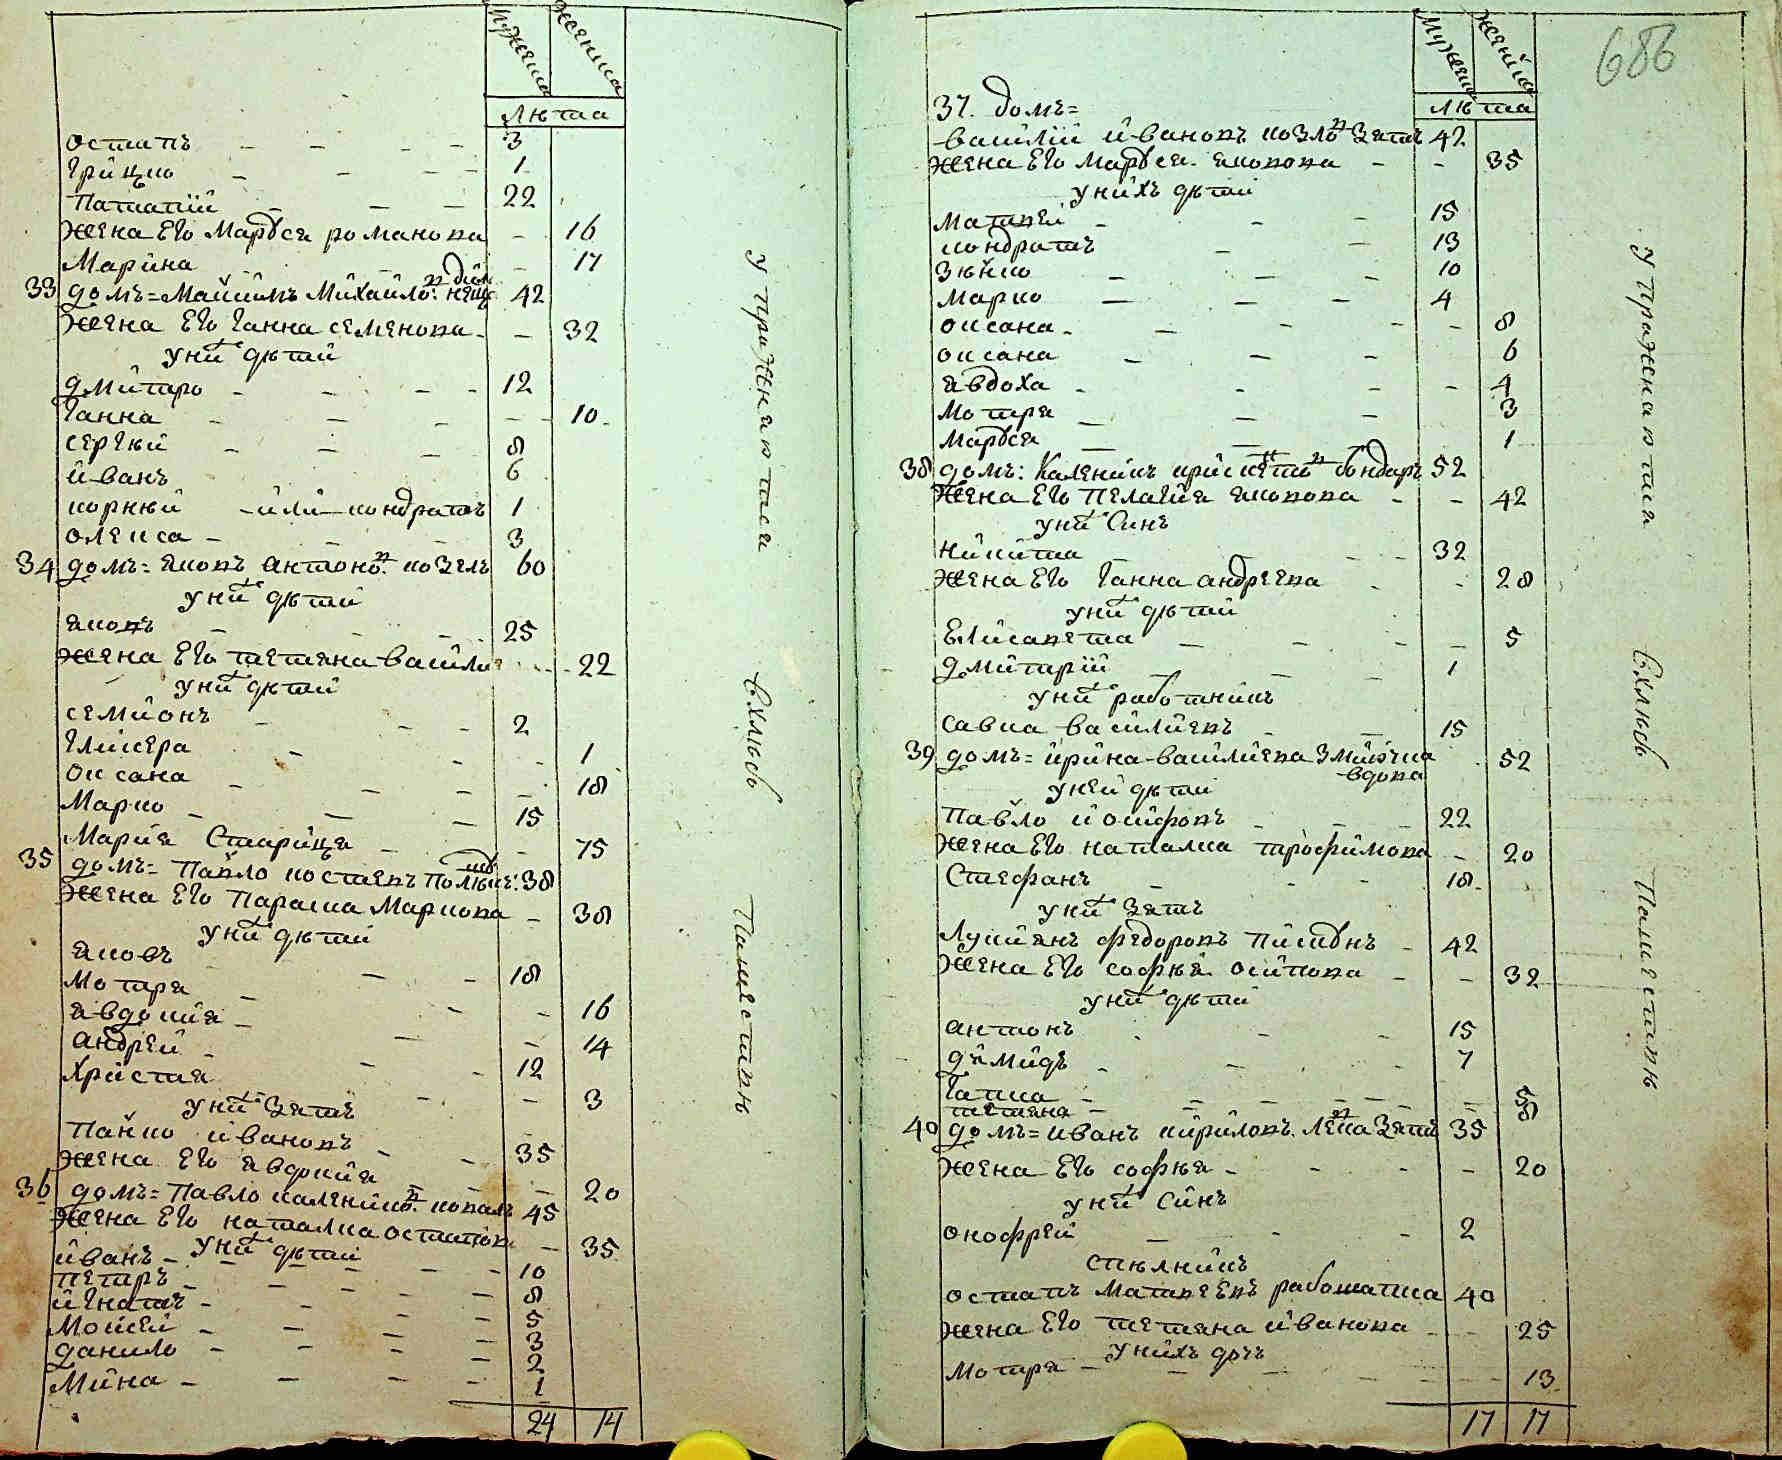 Мужеска Женска
Лѣта
остапъ 3
Грицко 1
Патапїй 22
Жена Его Маруся романова 16
Марина 17
33 домъ= Маѯимъ Михайло:
42
Жена Его Ганна семенова 32
у них дѣтей
дмитро 12
Ганна 10
сергѣй 8
иванъ 6
корнѣй или кондратъ 1
олекса 3
34 домъ= яковъ антоно:в козелъ 60
у них дѣтей
яковъ 25
Жена Его тетяна василе 22
у них дѣтей
семионъ 2
Гликера 1
оксана 18
Марко 15
Мария Старица 75
35 домъ= Павло костевъ 38
Жена Его Параска Маркова 38
у них дѣтей
яковъ 18
Мотря 16
явдокия 14
андрей 12
христя 3
у них зятъ
Панко ивановъ 35
Жена Его явдокия 20
36 домъ= Павло каленико:в ковалъ 45
Жена Его наталка остапова 35
у них дѣтей
иванъ 10
петръ 8
игнатъ 5
Мойсей 3
данило 2
Мина 1
24 14
упражняютися
Вхлѣбо
Пашествѣ
686
Мужеска Женска
Лѣта
37. домъ=
василїй ивановъ козло:в зятъ 42
жена Его Маруся яковова 35
у нихъ дѣтей
Матвей 15
кондратъ 13
Зѣнко 10
Марко 4
оксана 8
оксана 6
явдоха 4
Мотря 3
Маруся 1
38 домъ: Каленикъ бондаръ 52
Жена Его Пелагия яковова 42
у них Синъ
Никита 32
жена Его Ганна андреева 28
у них дѣтей
Елисавета 5
дмитрїй 1
у них работникъ
савка василиевъ 15
39 домъ= ирина василиева
вдова 52
у ней дѣтей
Павло иосифовъ 22
жена Его наталка трофимова 20
Стефанъ 18
у них зятъ
Лукиянъ федоровъ 42
Жена Его софѣя осипова 32
у них дѣтей
антонъ 15
димидъ 7
Гапка 5
тетяна 8
40 домъ= иванъ кириловъ. зятъ 35
жена Его софѣя 20
у них Синъ
онофрей 2
спѣлникъ
остапъ Матвеевъ 40
жена Его тетяна иванова 25
у нихъ дочъ
Мотря 13
17 17
упражняютця
Вхлѣбо
Пашествѣ